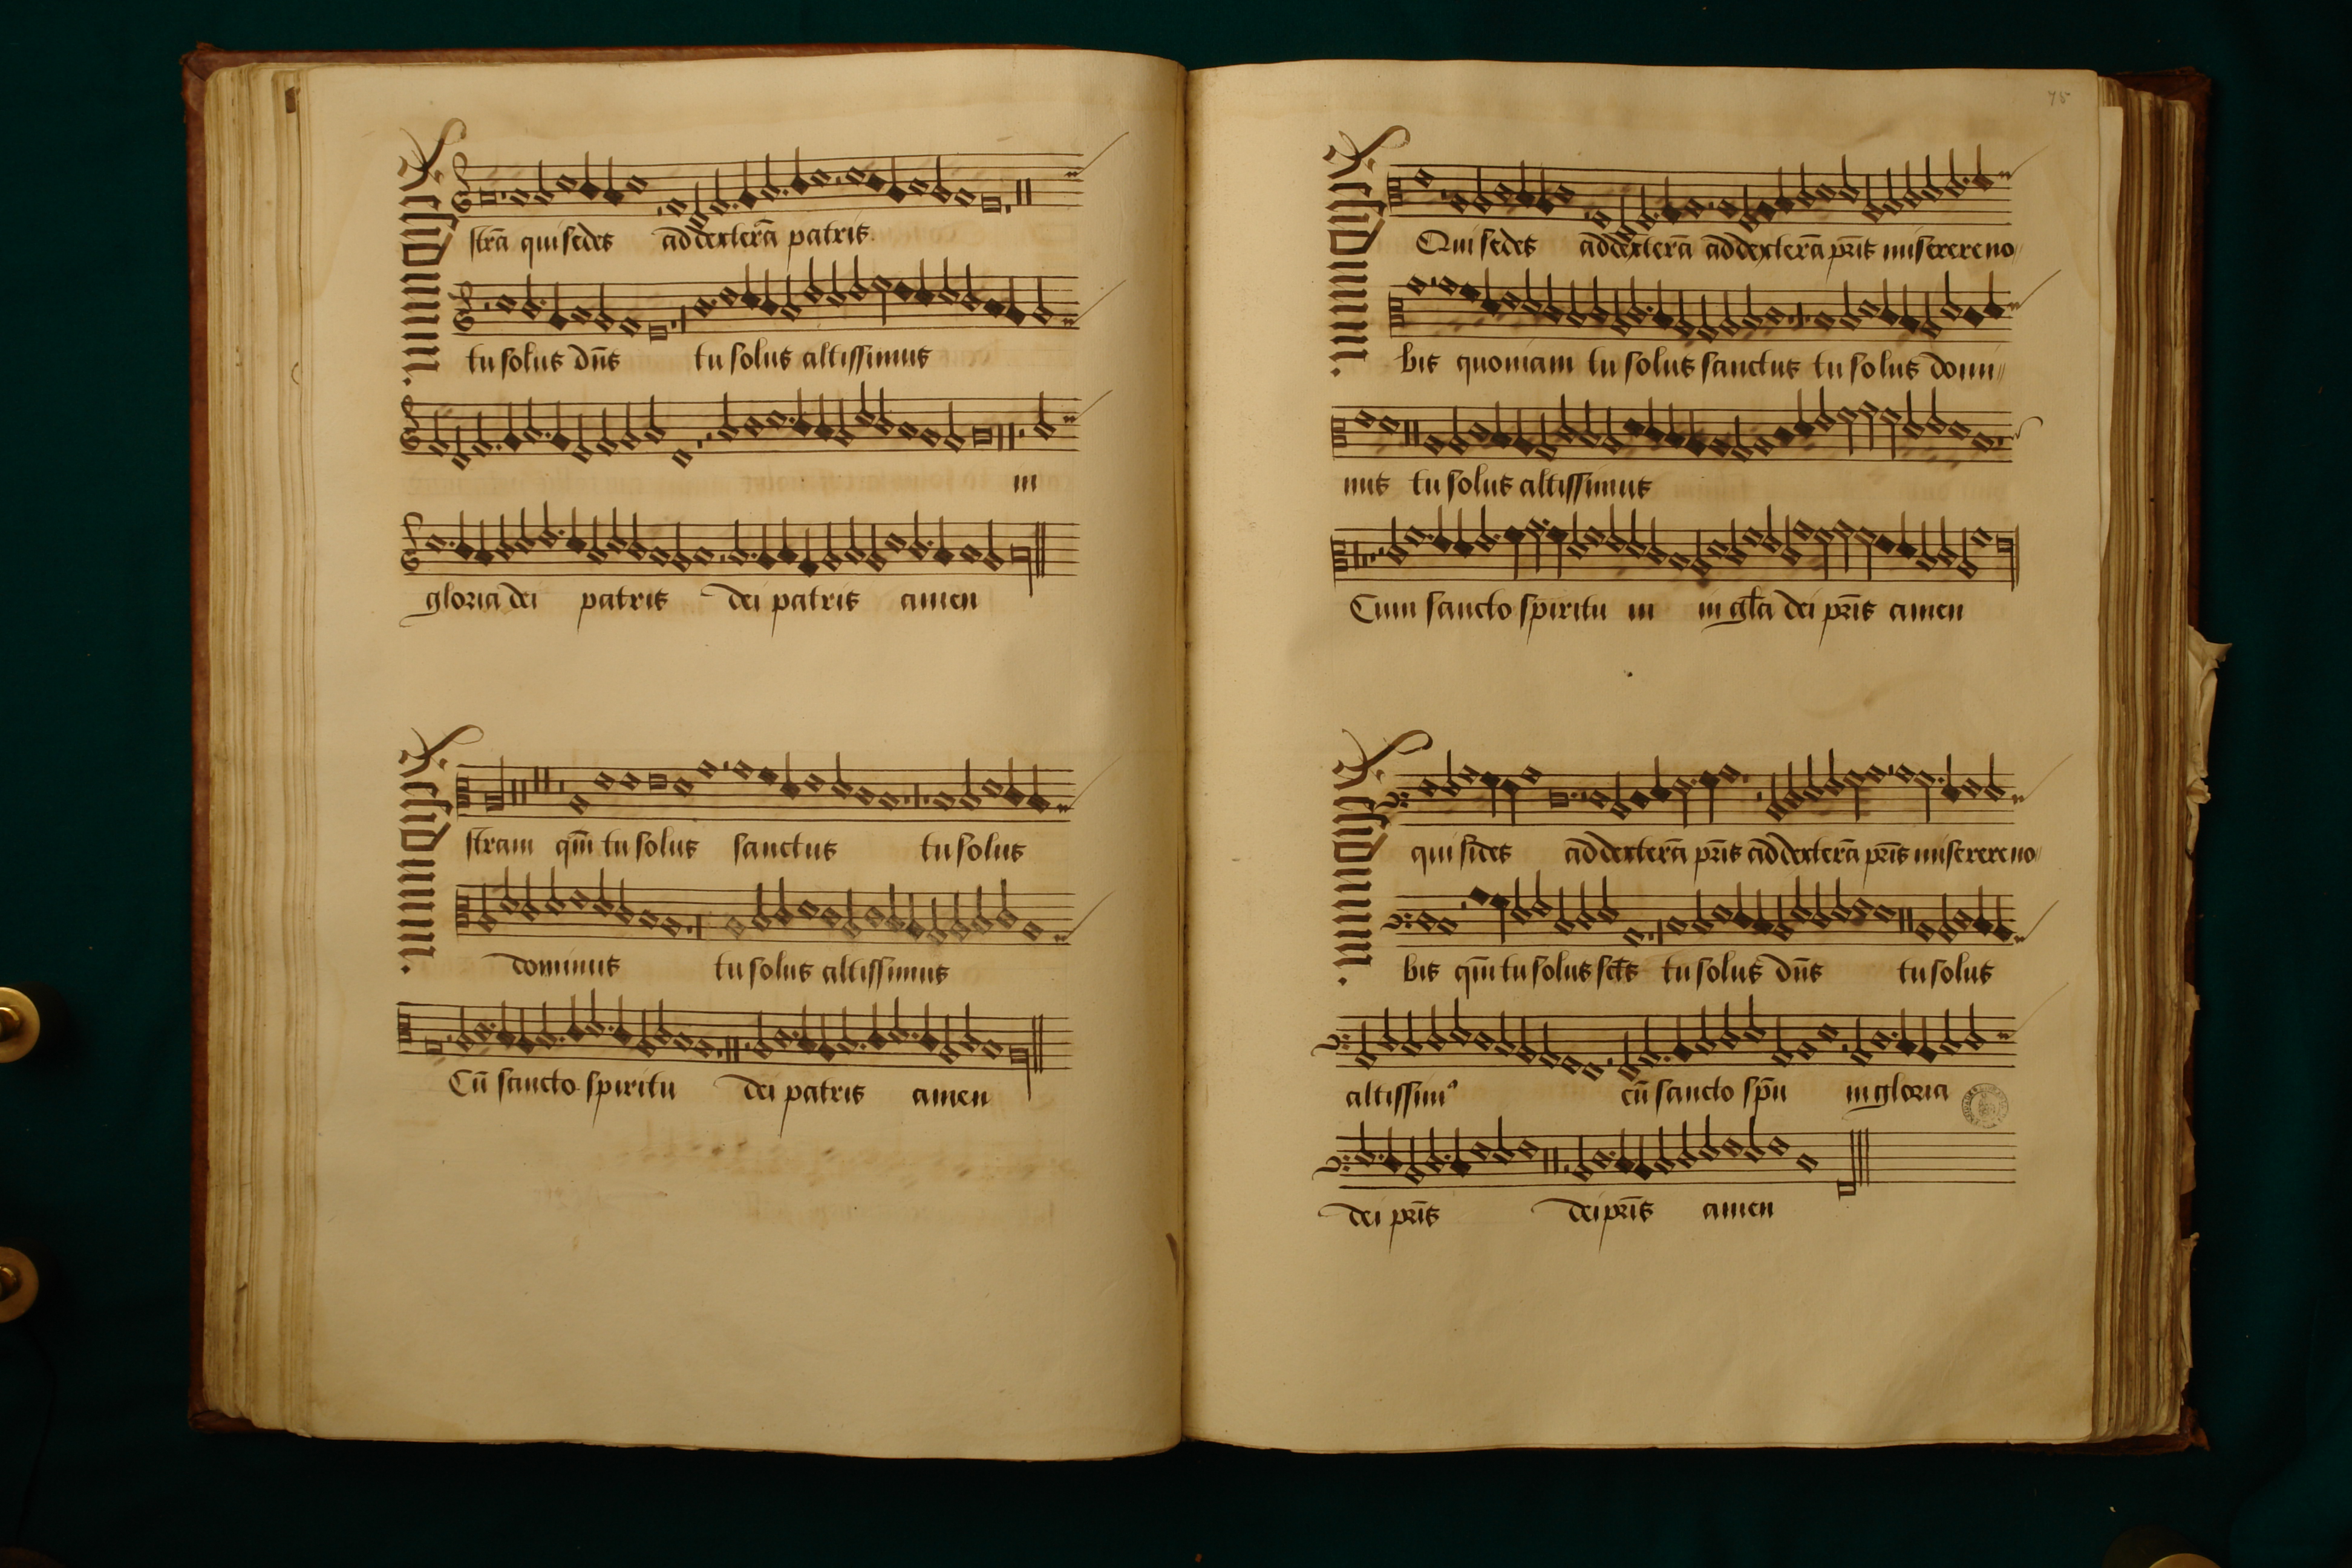 strā qui sedes ad dexterā patris
tu solus dn̄s tu solus altissimus
in
gloria dei patris dei patris amen
stram qm̄ tu solus sanctus tu solus
dominus tu solus altissimus
Cū sancto spiritu dei patris amen
75
Qui sedes ad dexterā ad dexterā pr̄is miserere no
bis quoniam tu solus sanctus tu solus domi
nus tu solus altissimus
Cum sancto spiritu in in gl̄a dei pr̄is amen
qui sides ad dexterā pr̄is ad dexterā pr̄is miserere no
bis qm̄ tu solus sct̄s tu solus dn̄s tu solus
altissimꝰ cū sancto sp̄u in gloria
dei pr̄is dei pr̄is amen